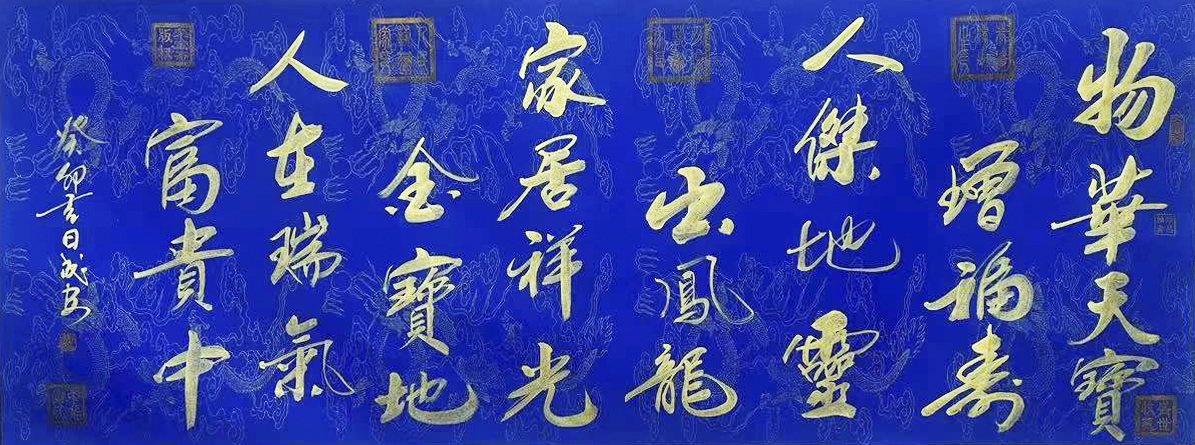 物華天寶
增福壽
人傑地靈
出鳳龍
家居祥光
金寶地
人在瑞氣
富貴中
癸卯吉日成安